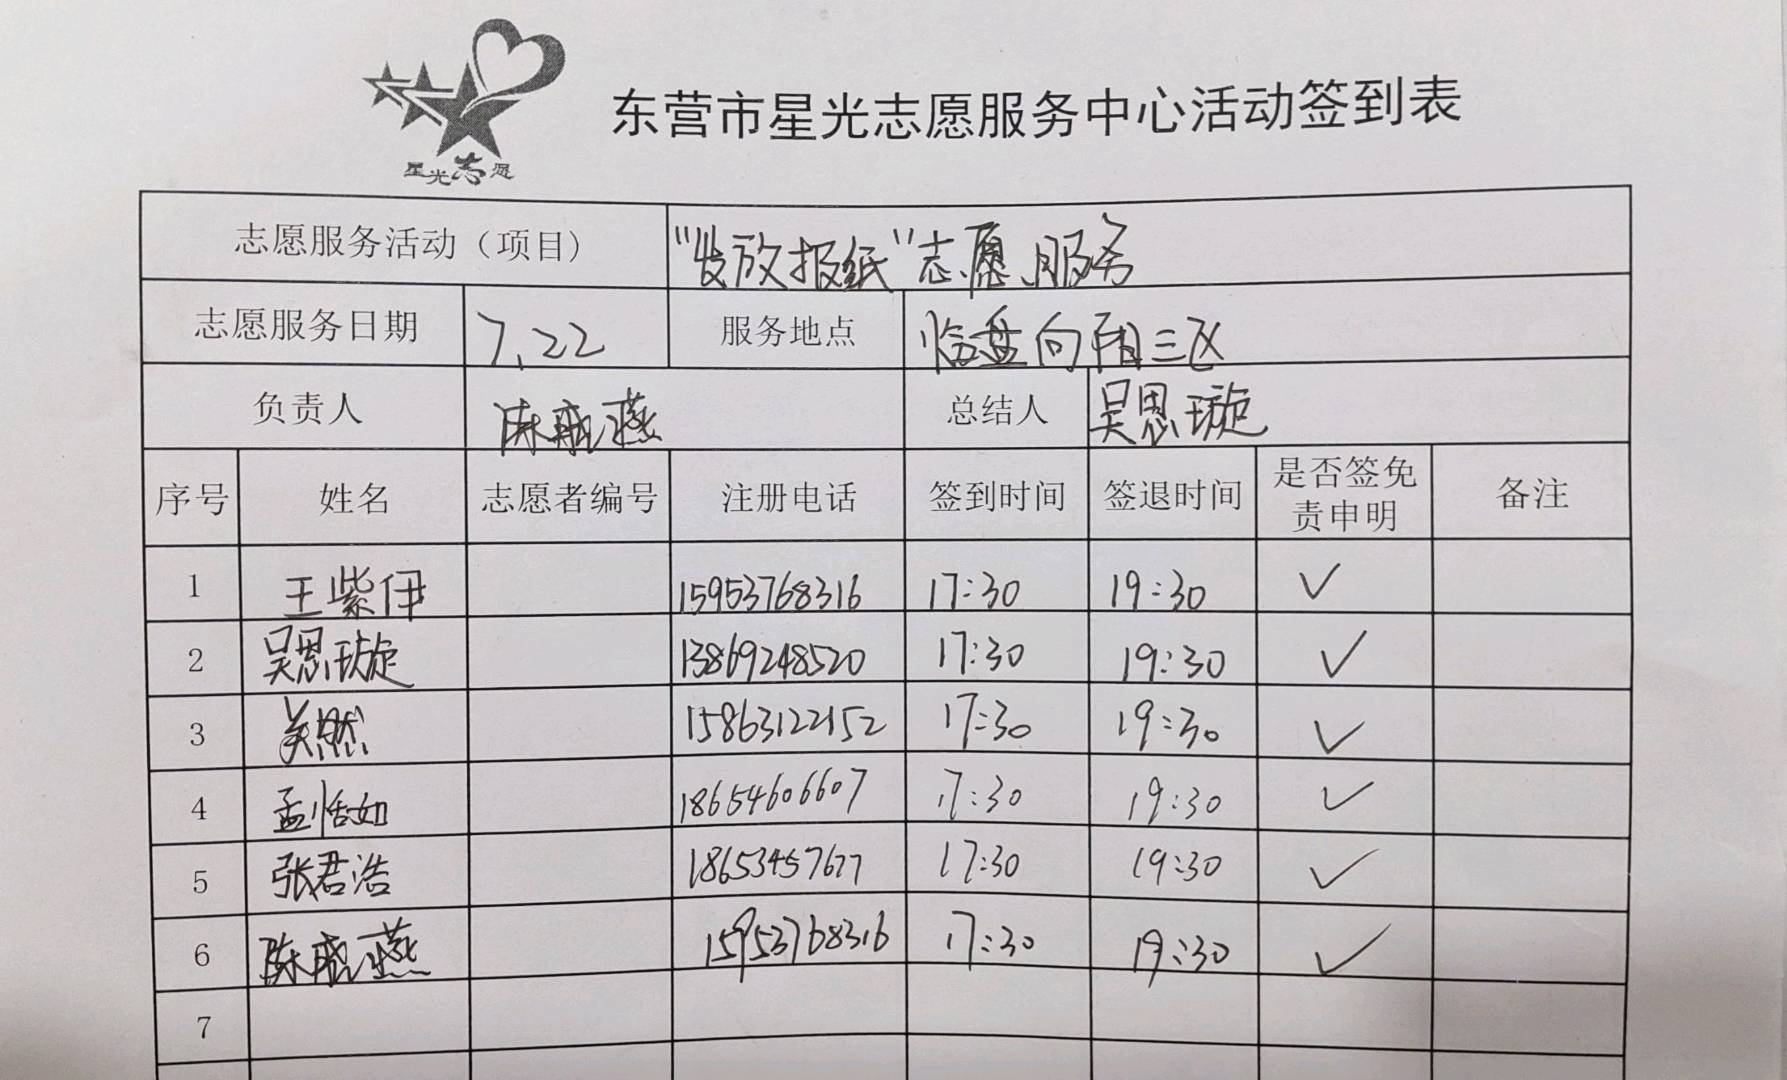 星光志愿
东营市星光志愿服务中心活动签到表
志愿服务活动（项目） “发放报纸”志愿服务
志愿服务日期 7.22 服务地点 临盘向阳三区
负责人 陈 燕 总结人 吴思璇
序号 姓名 志愿者编号 注册电话 签到时间 签退时间 是否签免责申明 备注
1 王紫伊 15953768316 17:30 19:30 ✓
2 吴思璇 13869248520 17:30 19:30 ✓
3 关然 15863122152 17:30 19:30 ✓
4 孟恬如 18654606607 17:30 19:30 ✓
5 张君浩 17:30 19:30 ✓
6 陈 燕 15953768316 17:30 19:30 ✓
7